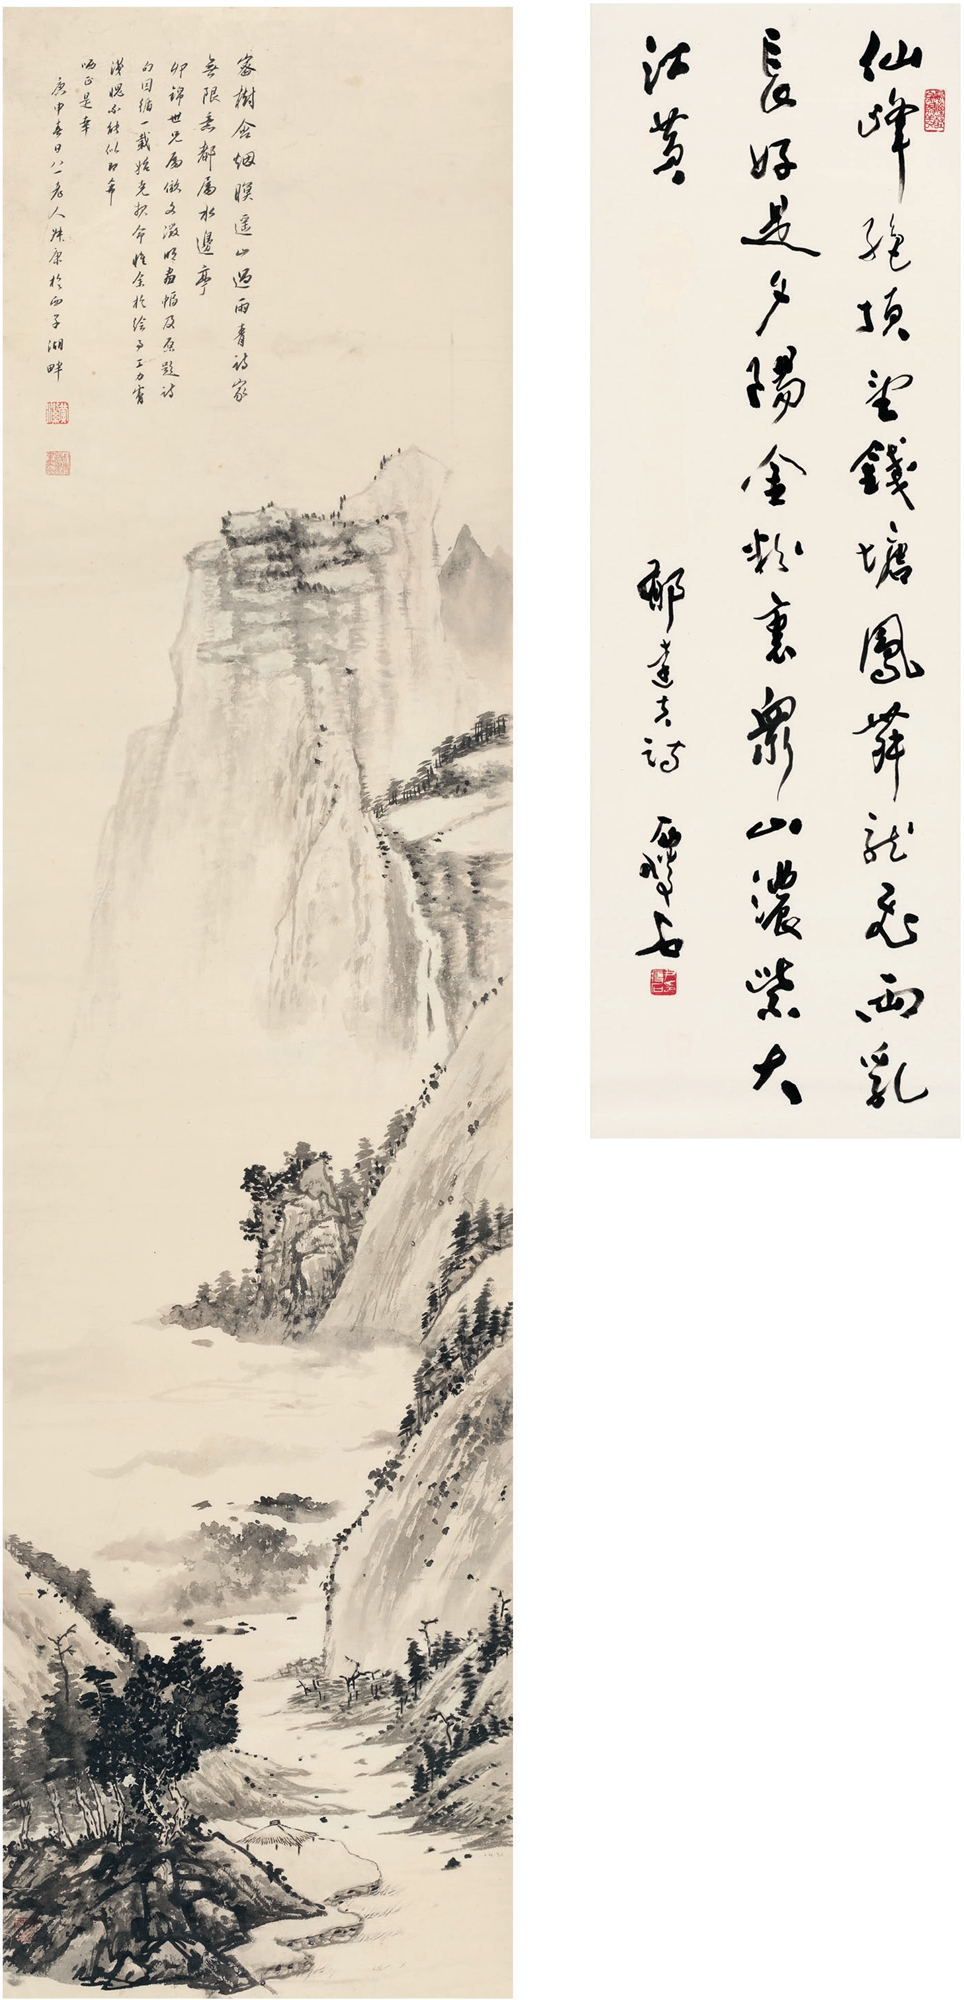 密樹含烟暝遥山過雨青詩家
無限意都屬水邊亭
卯錦世兄屬仿文徵明畫幅及原題詩
而因循一載始克報命惟余於繪事工力膚
淺愧不能似即希
哂正是幸
庚申春日八一老人 康於西子湖畔
仙峰絕頂望錢塘鳳舞龍飛兩乳
長好是夕陽金粉裏衆山濃紫大
江黄
郁達夫詩